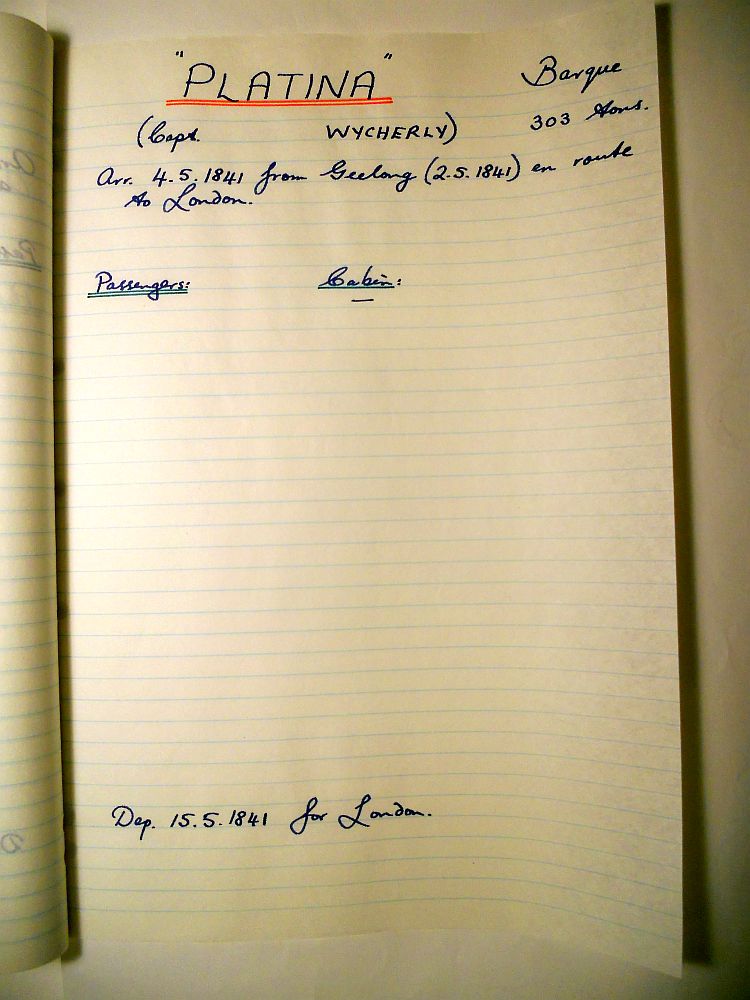 "PLATINA" Barque
(Capt. WYCHERLY) 303 tons.
Arr. 4.5.1841 from Geelong (2.5.1841) en route
to London.
Passengers: Cabin:
—
Dep. 15.5.1841 for London.